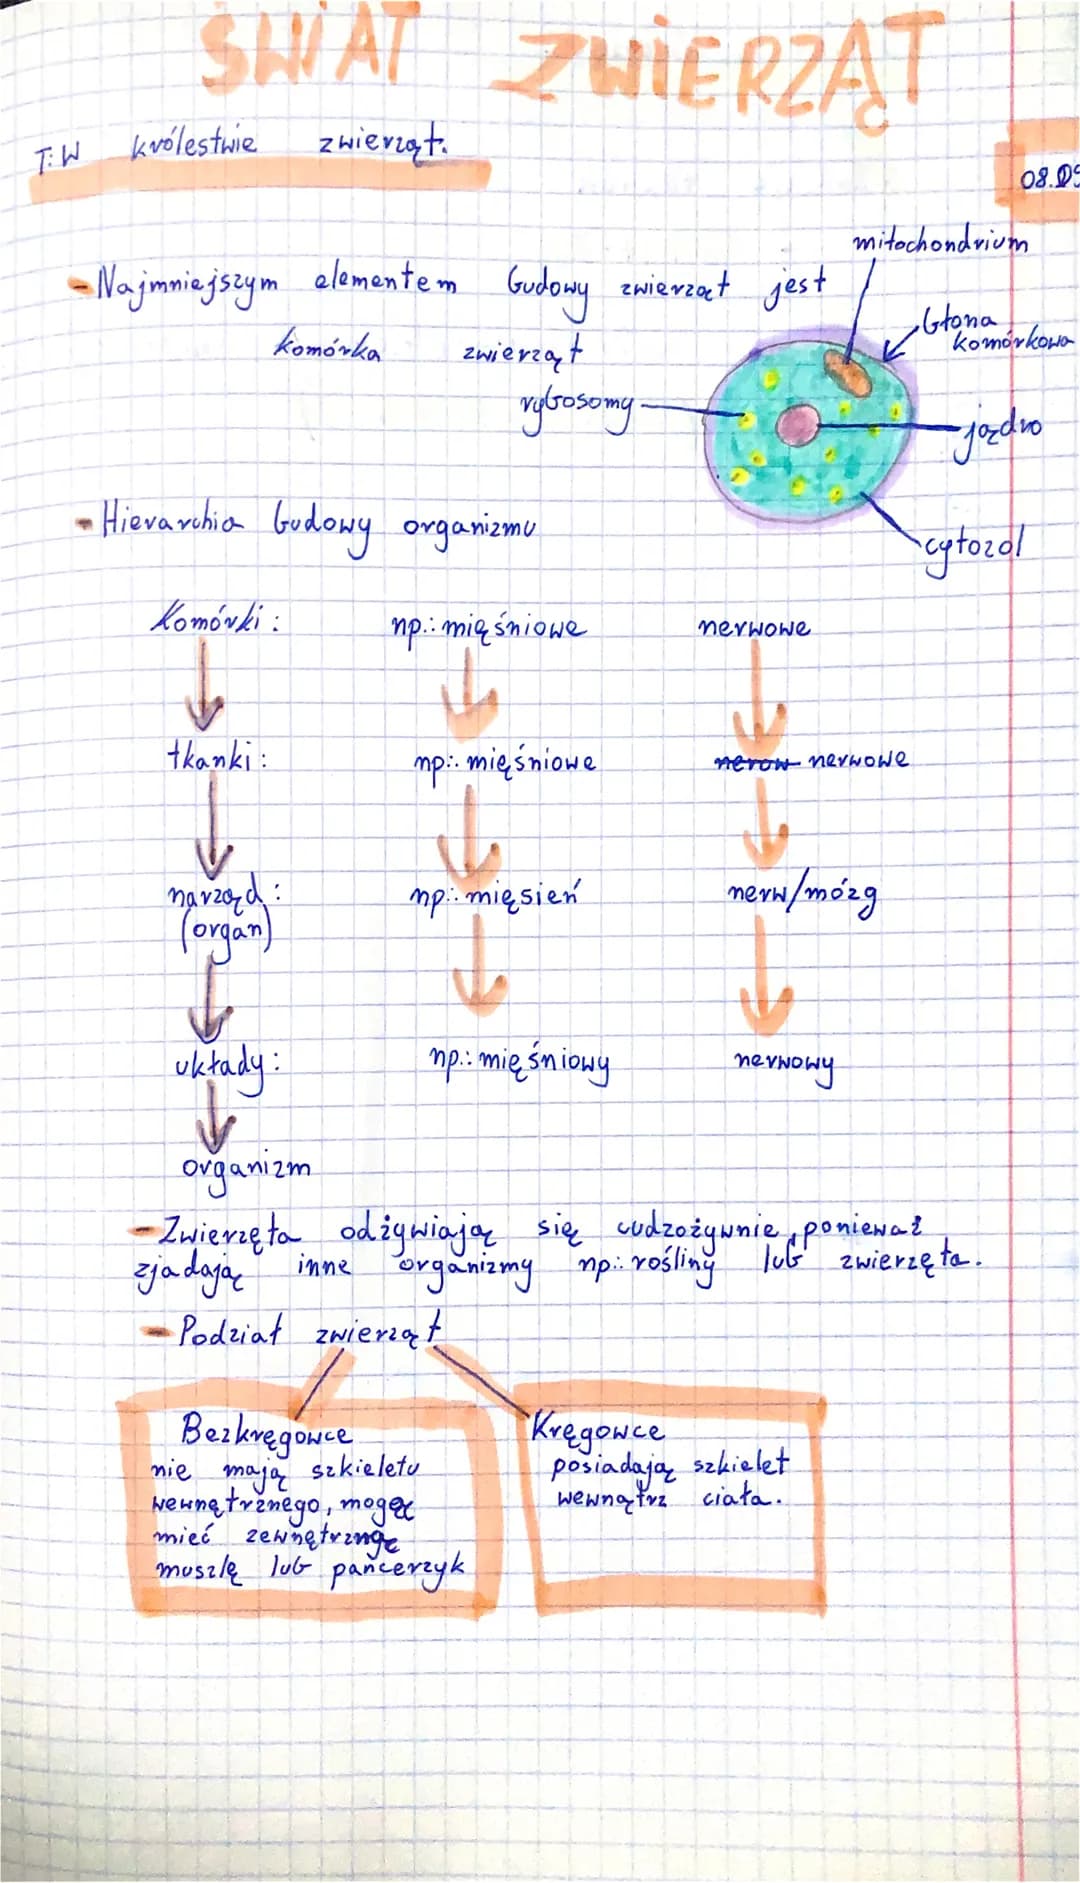 ŚWIAT ZWIERZĄT
T: W królestwie zwierząt.
08.09
mitochondrium
- Najmniejszym elementem budowy zwierząt jest
błona
komórkowa
komórka zwierząt
rybosomy
jądro
- Hierarchia budowy organizmu
cytozol
Komórki: np.: mięśniowe nerwowe
tkanki: np.: mięśniowe nerow nerwowe
narząd: np.: mięsień nerw/mózg
(organ)
układy: np.: mięśniowy nerwowy
organizm
- Zwierzęta odżywiają się cudzożywnie, ponieważ
zjadają inne organizmy np.: rośliny lub zwierzęta.
- Podział zwierząt
Bezkręgowce
nie mają szkieletu
wewnętrznego, mogą
mieć zewnętrzną
muszlę lub pancerzyk
Kręgowce
posiadają szkielet
wewnątrz ciała.